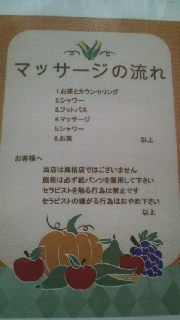 マッサージの流れ
1.お茶とカウンセリング
2.シャワー
3.フットバス
4.マッサージ
5.シャワー
6.お茶
以上
お客様へ
当店は風俗店ではございません
施術は必ず紙パンツを着用して下さい
セラピストを触る行為は禁止です
セラピストの嫌がる行為はおやめ下さい
以上